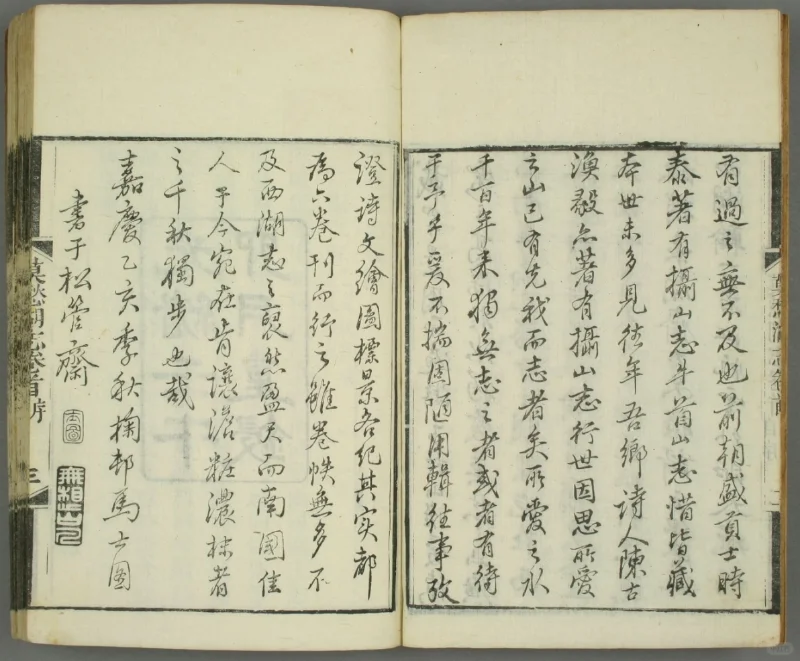 有過之無不及也前朝盛貢士時
泰著有攝山志牛首山志惜皆藏
本世未多見往年吾鄉詩人陳古
漁毅亦著有攝山志行世因思所愛
之山已有先我而志者矣所愛之水
千百年來獨無志之者或者有待
于予乎爰不揣固陋用輯往事攷
證詩文繪圖標景各紀其实都
為六卷刊而行之雖卷帙無多不
及西湖志之裒然盈尺而南國佳
人于今宛在肯讓澹粧濃抹者
之千秋獨步也哉
嘉慶乙亥季秋掬邨馬士圖
書于松管齋
士圖
莫愁湖志卷首
三